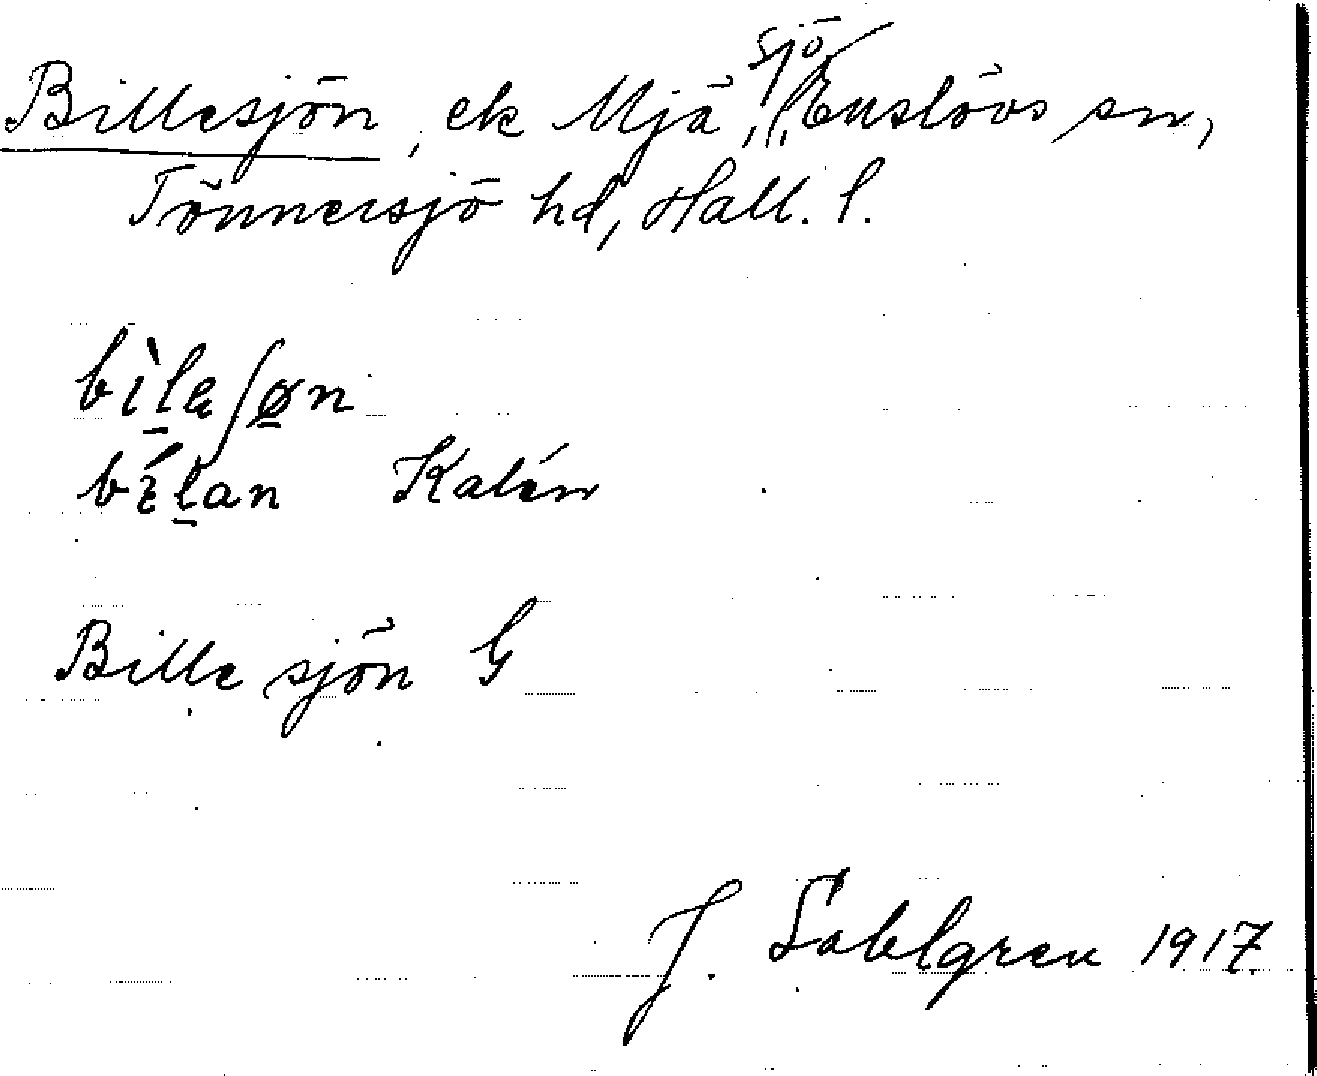 Billesjön, ek Mjä, sjö, Enslövs sn,
Tönnersjö hd, Hall. l.
bìlaʃøn
bílan Kalén
Bille sjön G
J. Sahlgren 1917